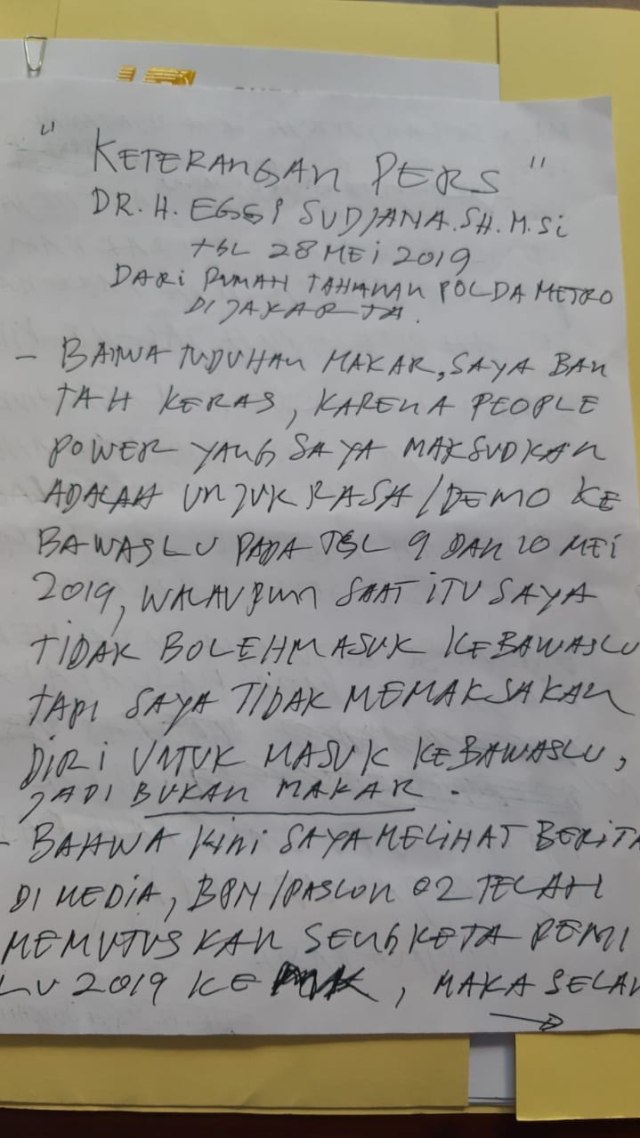 " KETERANGAN PERS "
DR. H. EGGI SUDJANA.SH.M.Si
TGL 28 MEI 2019
DARI RUMAH TAHANAN POLDA METRO
DI JAKARTA.
- BAHWA TUDUHAN MAKAR, SAYA BAN
TAH KERAS, KARENA PEOPLE
POWER YANG SAYA MAKSUDKAN
ADALAH UNJUK RASA/DEMO KE
BAWASLU PADA TGL 9 DAN 10 MEI
2019, WALAUPUN SAAT ITU SAYA
TIDAK BOLEH MASUK KE BAWASLU
TAPI SAYA TIDAK MEMAKSAKAN
DIRI UNTUK MASUK KE BAWASLU,
JADI BUKAN MAKAR.
- BAHWA KINI SAYA MELIHAT BERITA
DI MEDIA, BPN/PASLON 02 TELAH
MEMUTUSKAN SENGKETA PEMI
LU 2019 KE MK, MAKA SELAN